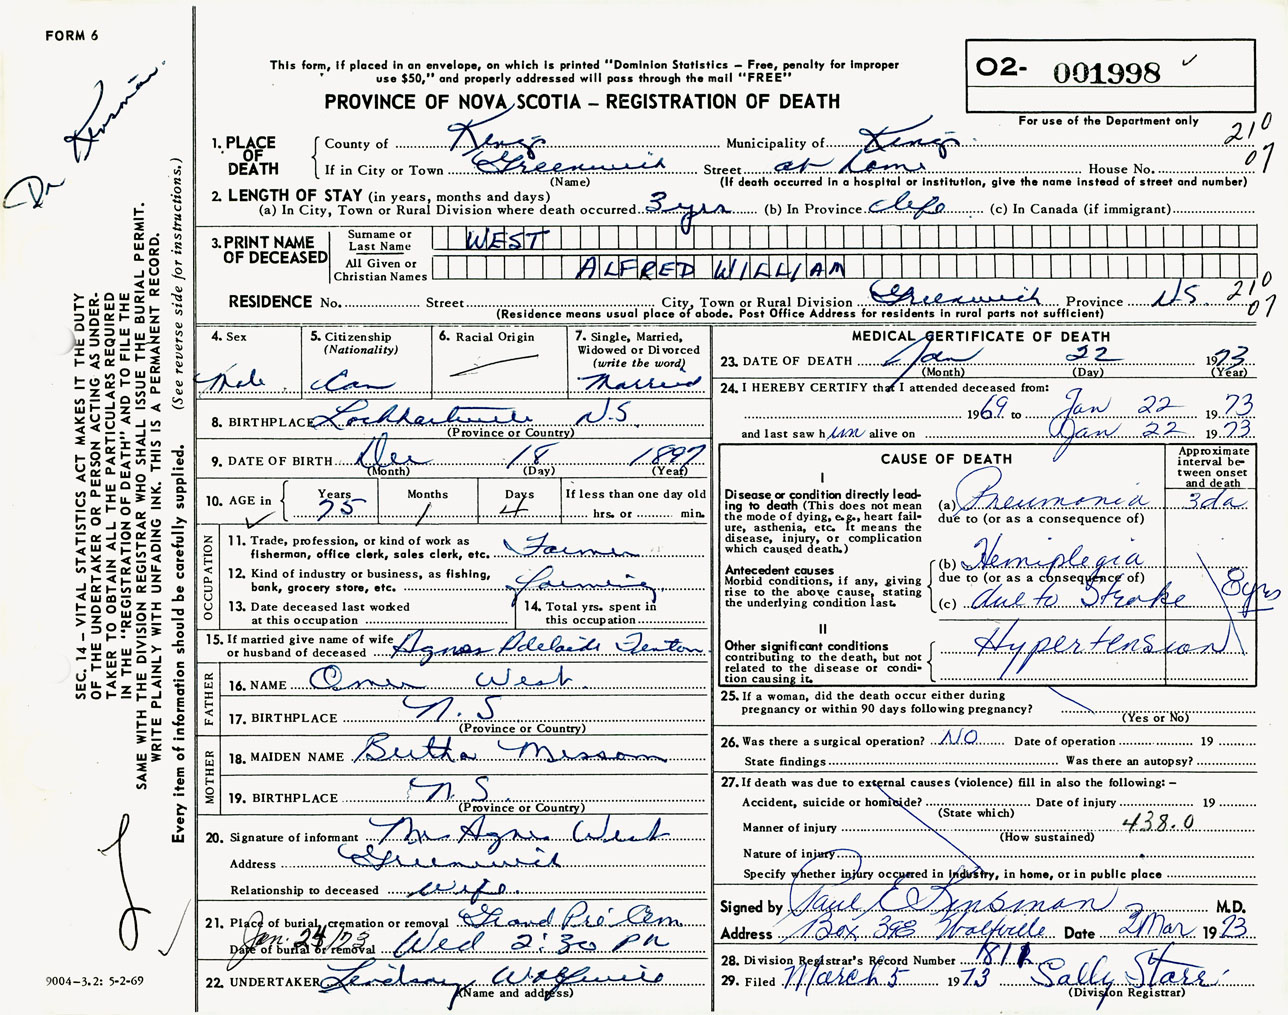 FORM 6
Dr Kinsman
This form, if placed in an envelope, on which is printed "Dominion Statistics – Free, penalty for improper
use $50," and properly addressed will pass through the mail "FREE"
PROVINCE OF NOVA SCOTIA – REGISTRATION OF DEATH
O2- 001998
For use of the Department only
210
07
1. PLACE OF DEATH
County of Kings Municipality of Kings
If in City or Town Greenwich Street at home House No.
(Name) (If death occurred in a hospital or institution, give the name instead of street and number)
2. LENGTH OF STAY (in years, months and days)
(a) In City, Town or Rural Division where death occurred 3 yrs (b) In Province life (c) In Canada (if immigrant)
3. PRINT NAME OF DECEASED
Surname or Last Name WEST
All Given or Christian Names ALFRED WILLIAM
RESIDENCE No. Street City, Town or Rural Division Greenwich Province N.S. 210
07
(Residence means usual place of abode. Post Office Address for residents in rural parts not sufficient)
4. Sex Male
5. Citizenship (Nationality) Can
6. Racial Origin
7. Single, Married, Widowed or Divorced (write the word) Married
8. BIRTHPLACE Lockhartville N.S.
(Province or Country)
9. DATE OF BIRTH Dec 18 1897
(Month) (Day) (Year)
10. AGE in Years 75 Months 1 Days 4 If less than one day old
hrs. or min.
OCCUPATION
11. Trade, profession, or kind of work as
fisherman, office clerk, sales clerk, etc. Farmer
12. Kind of industry or business, as fishing,
bank, grocery store, etc. farming
13. Date deceased last worked
at this occupation
14. Total yrs. spent in
this occupation
15. If married give name of wife
or husband of deceased Agnes Adelaide Fenton
FATHER
16. NAME Omer West
17. BIRTHPLACE N.S
(Province or Country)
MOTHER
18. MAIDEN NAME Bertha
19. BIRTHPLACE N.S.
(Province or Country)
20. Signature of informant Mrs Agnes West
Address Greenwich
Relationship to deceased Wife.
21. Place of burial, cremation or removal Grand Pré Cem
Jan. 24/73
Date of burial or removal Wed 2:30 PM
22. UNDERTAKER Lindsay Wolfville
(Name and address)
MEDICAL CERTIFICATE OF DEATH
23. DATE OF DEATH Jan 22 1973
(Month) (Day) (Year)
24. I HEREBY CERTIFY that I attended deceased from:
1969 to Jan 22 1973
and last saw him alive on Jan 22 1973
CAUSE OF DEATH
Approximate interval between onset and death
I
Disease or condition directly lead-
ing to death (This does not mean
the mode of dying, e.g., heart fail-
ure, asthenia, etc. It means the
disease, injury, or complication
which caused death.)
(a) Pneumonia 3da
due to (or as a consequence of)
Antecedent causes
Morbid conditions, if any, giving
rise to the above cause, stating
the underlying condition last.
(b) Hemiplegia
due to (or as a consequence of)
(c) due to Stroke 8yrs
II
Other significant conditions
contributing to the death, but not
related to the disease or condi-
tion causing it.
Hypertension
25. If a woman, did the death occur either during
pregnancy or within 90 days following pregnancy?
(Yes or No)
26. Was there a surgical operation? NO Date of operation 19
State findings Was there an autopsy?
27. If death was due to external causes (violence) fill in also the following: –
Accident, suicide or homicide? Date of injury 19
(State which)
Manner of injury 438.0
(How sustained)
Nature of injury
Specify whether injury occurred in industry, in home, or in public place
Signed by Paul E Kinsman M.D.
Address Box 398 Wolfville Date 2 Mar 1973
28. Division Registrar's Record Number
29. Filed March 5 1973 Sally Starr
(Division Registrar)
SEC. 14 – VITAL STATISTICS ACT MAKES IT THE DUTY
OF THE UNDERTAKER OR PERSON ACTING AS UNDER-
TAKER TO OBTAIN ALL THE PARTICULARS REQUIRED
IN THE "REGISTRATION OF DEATH" AND TO FILE THE
SAME WITH THE DIVISION REGISTRAR WHO SHALL ISSUE THE BURIAL PERMIT.
WRITE PLAINLY WITH UNFADING INK. THIS IS A PERMANENT RECORD.
Every item of information should be carefully supplied. (See reverse side for instructions.)
9004-3.2: 5-2-69